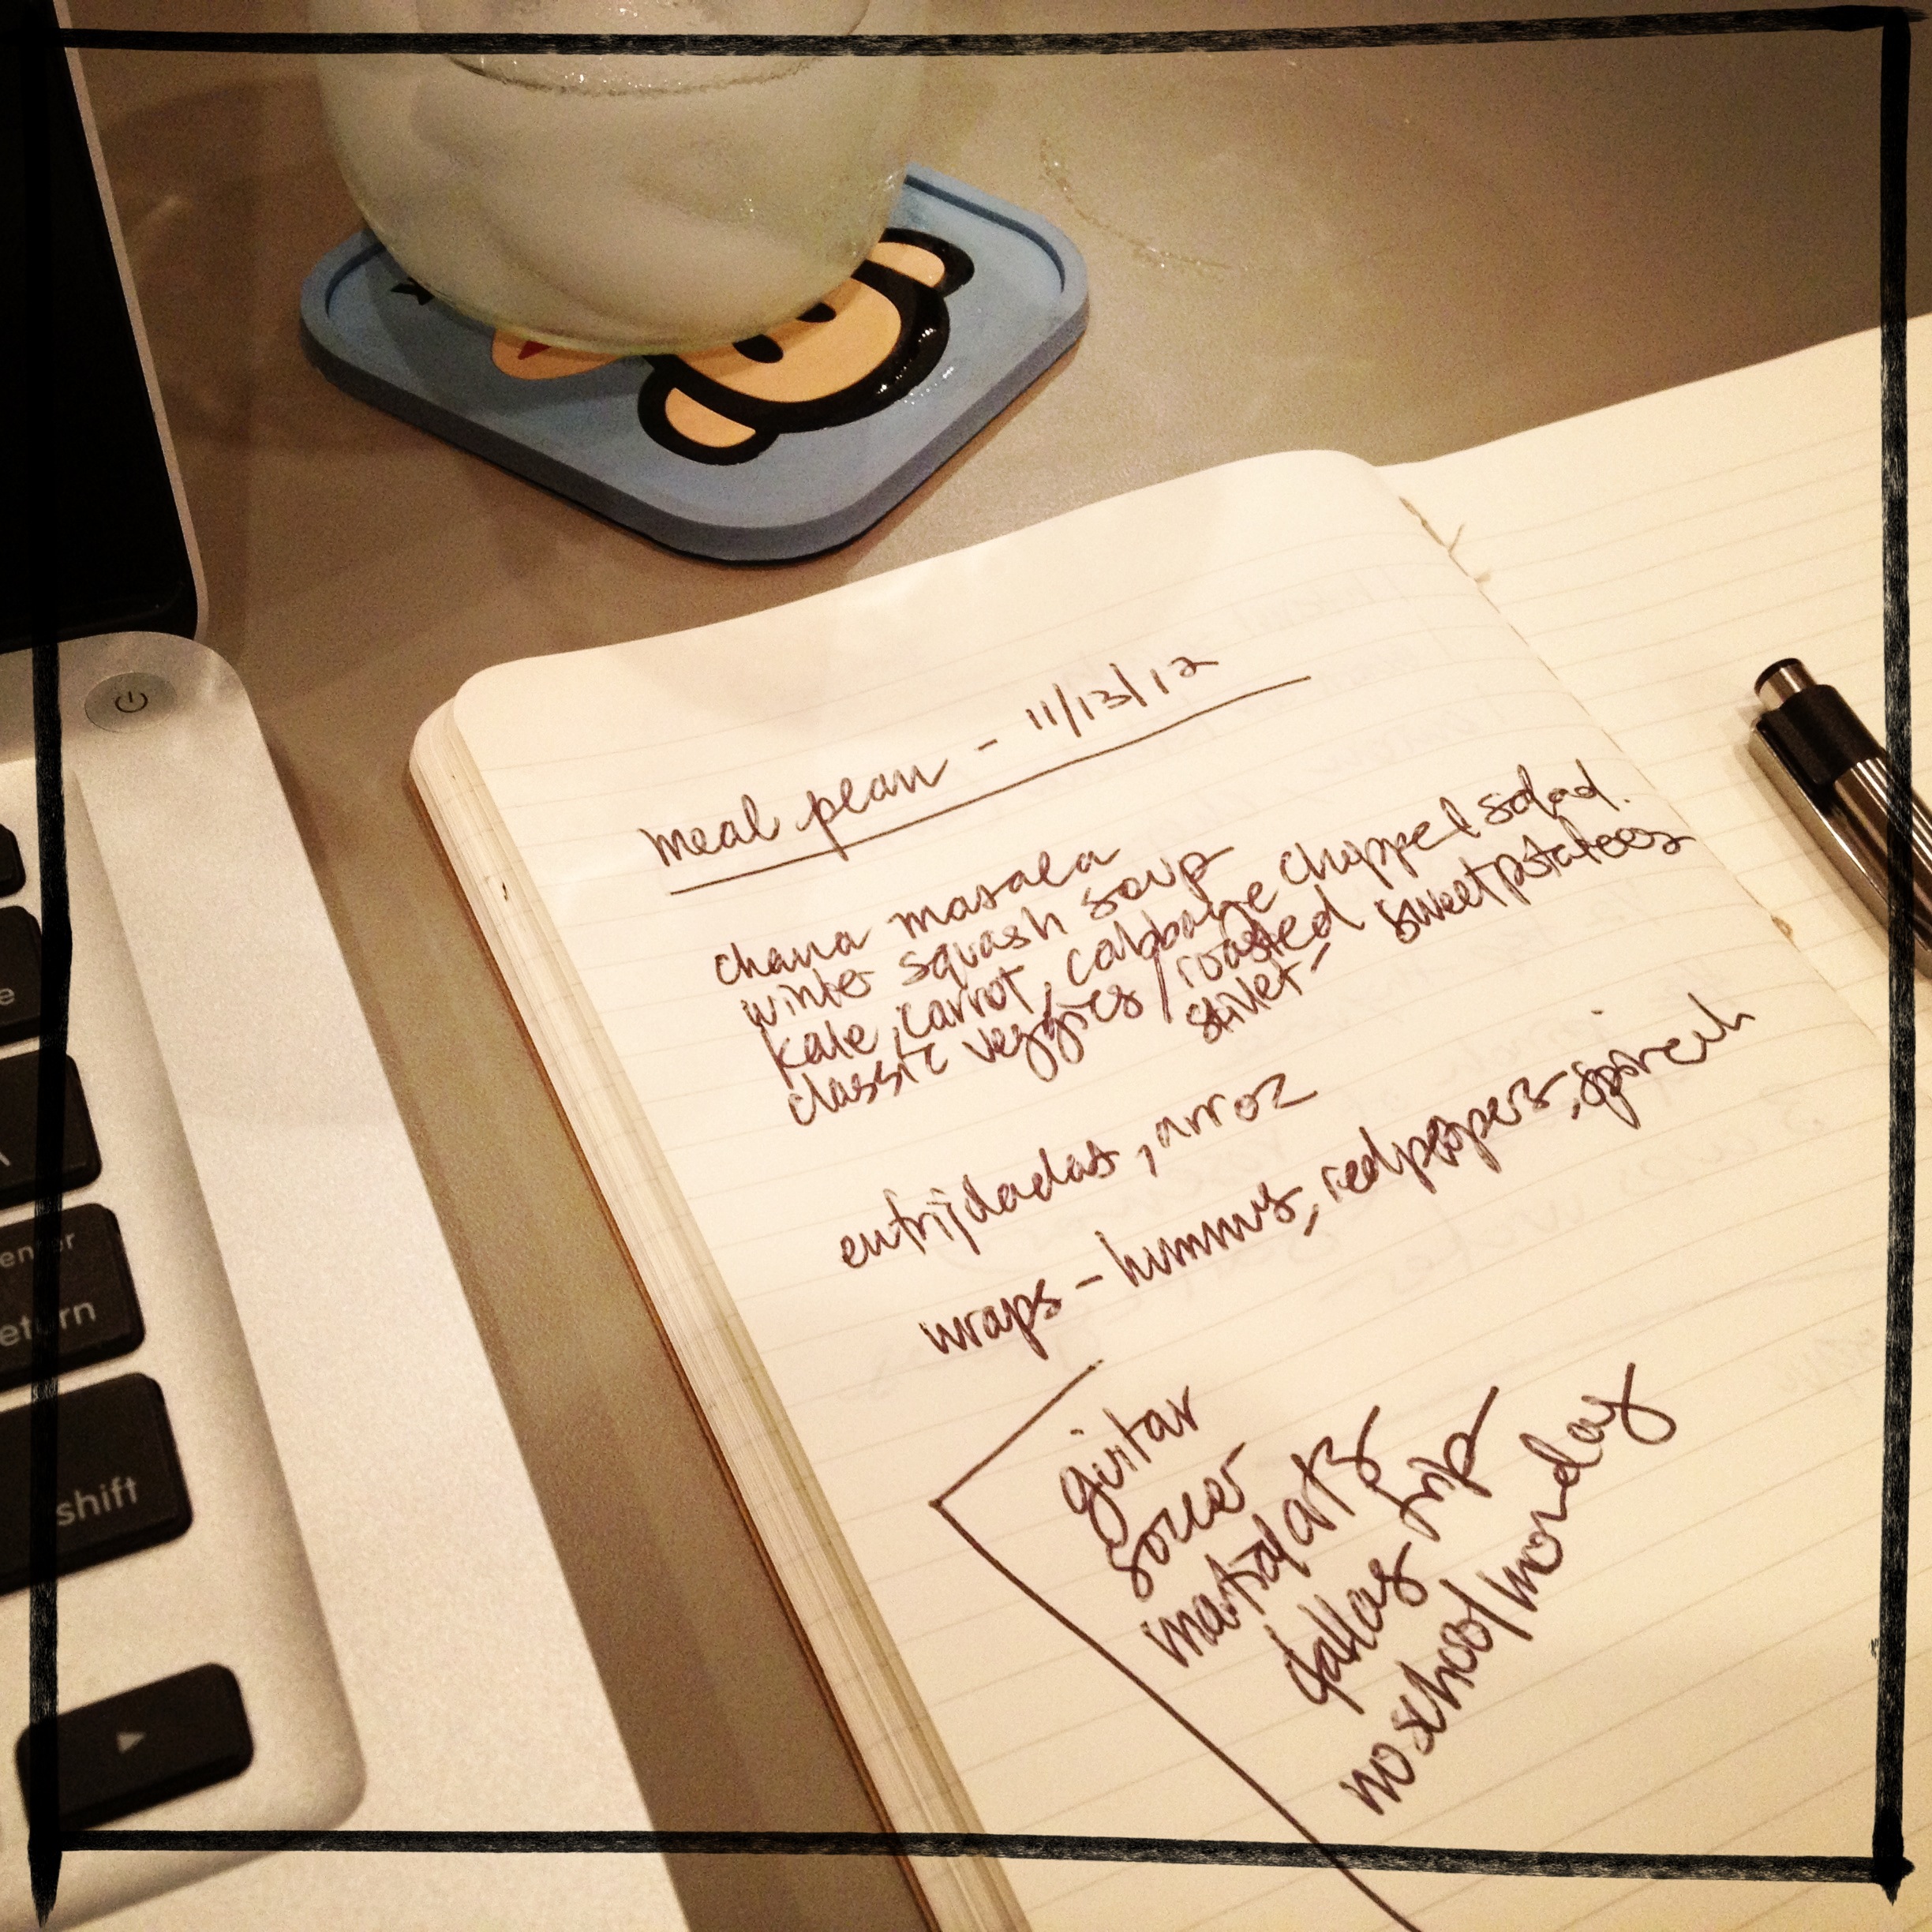 meal plan - 11/13/12
chana masala
winter squash soup
kale, carrot, cabbage chopped salad.
classic veggies / roasted sweet potatoes
skillet -
enfrijoladas, arroz
wraps - hummus, red peppers, spinach
guitar
soccer
martial arts
dallas trip
no school/monday
enter
return
shift